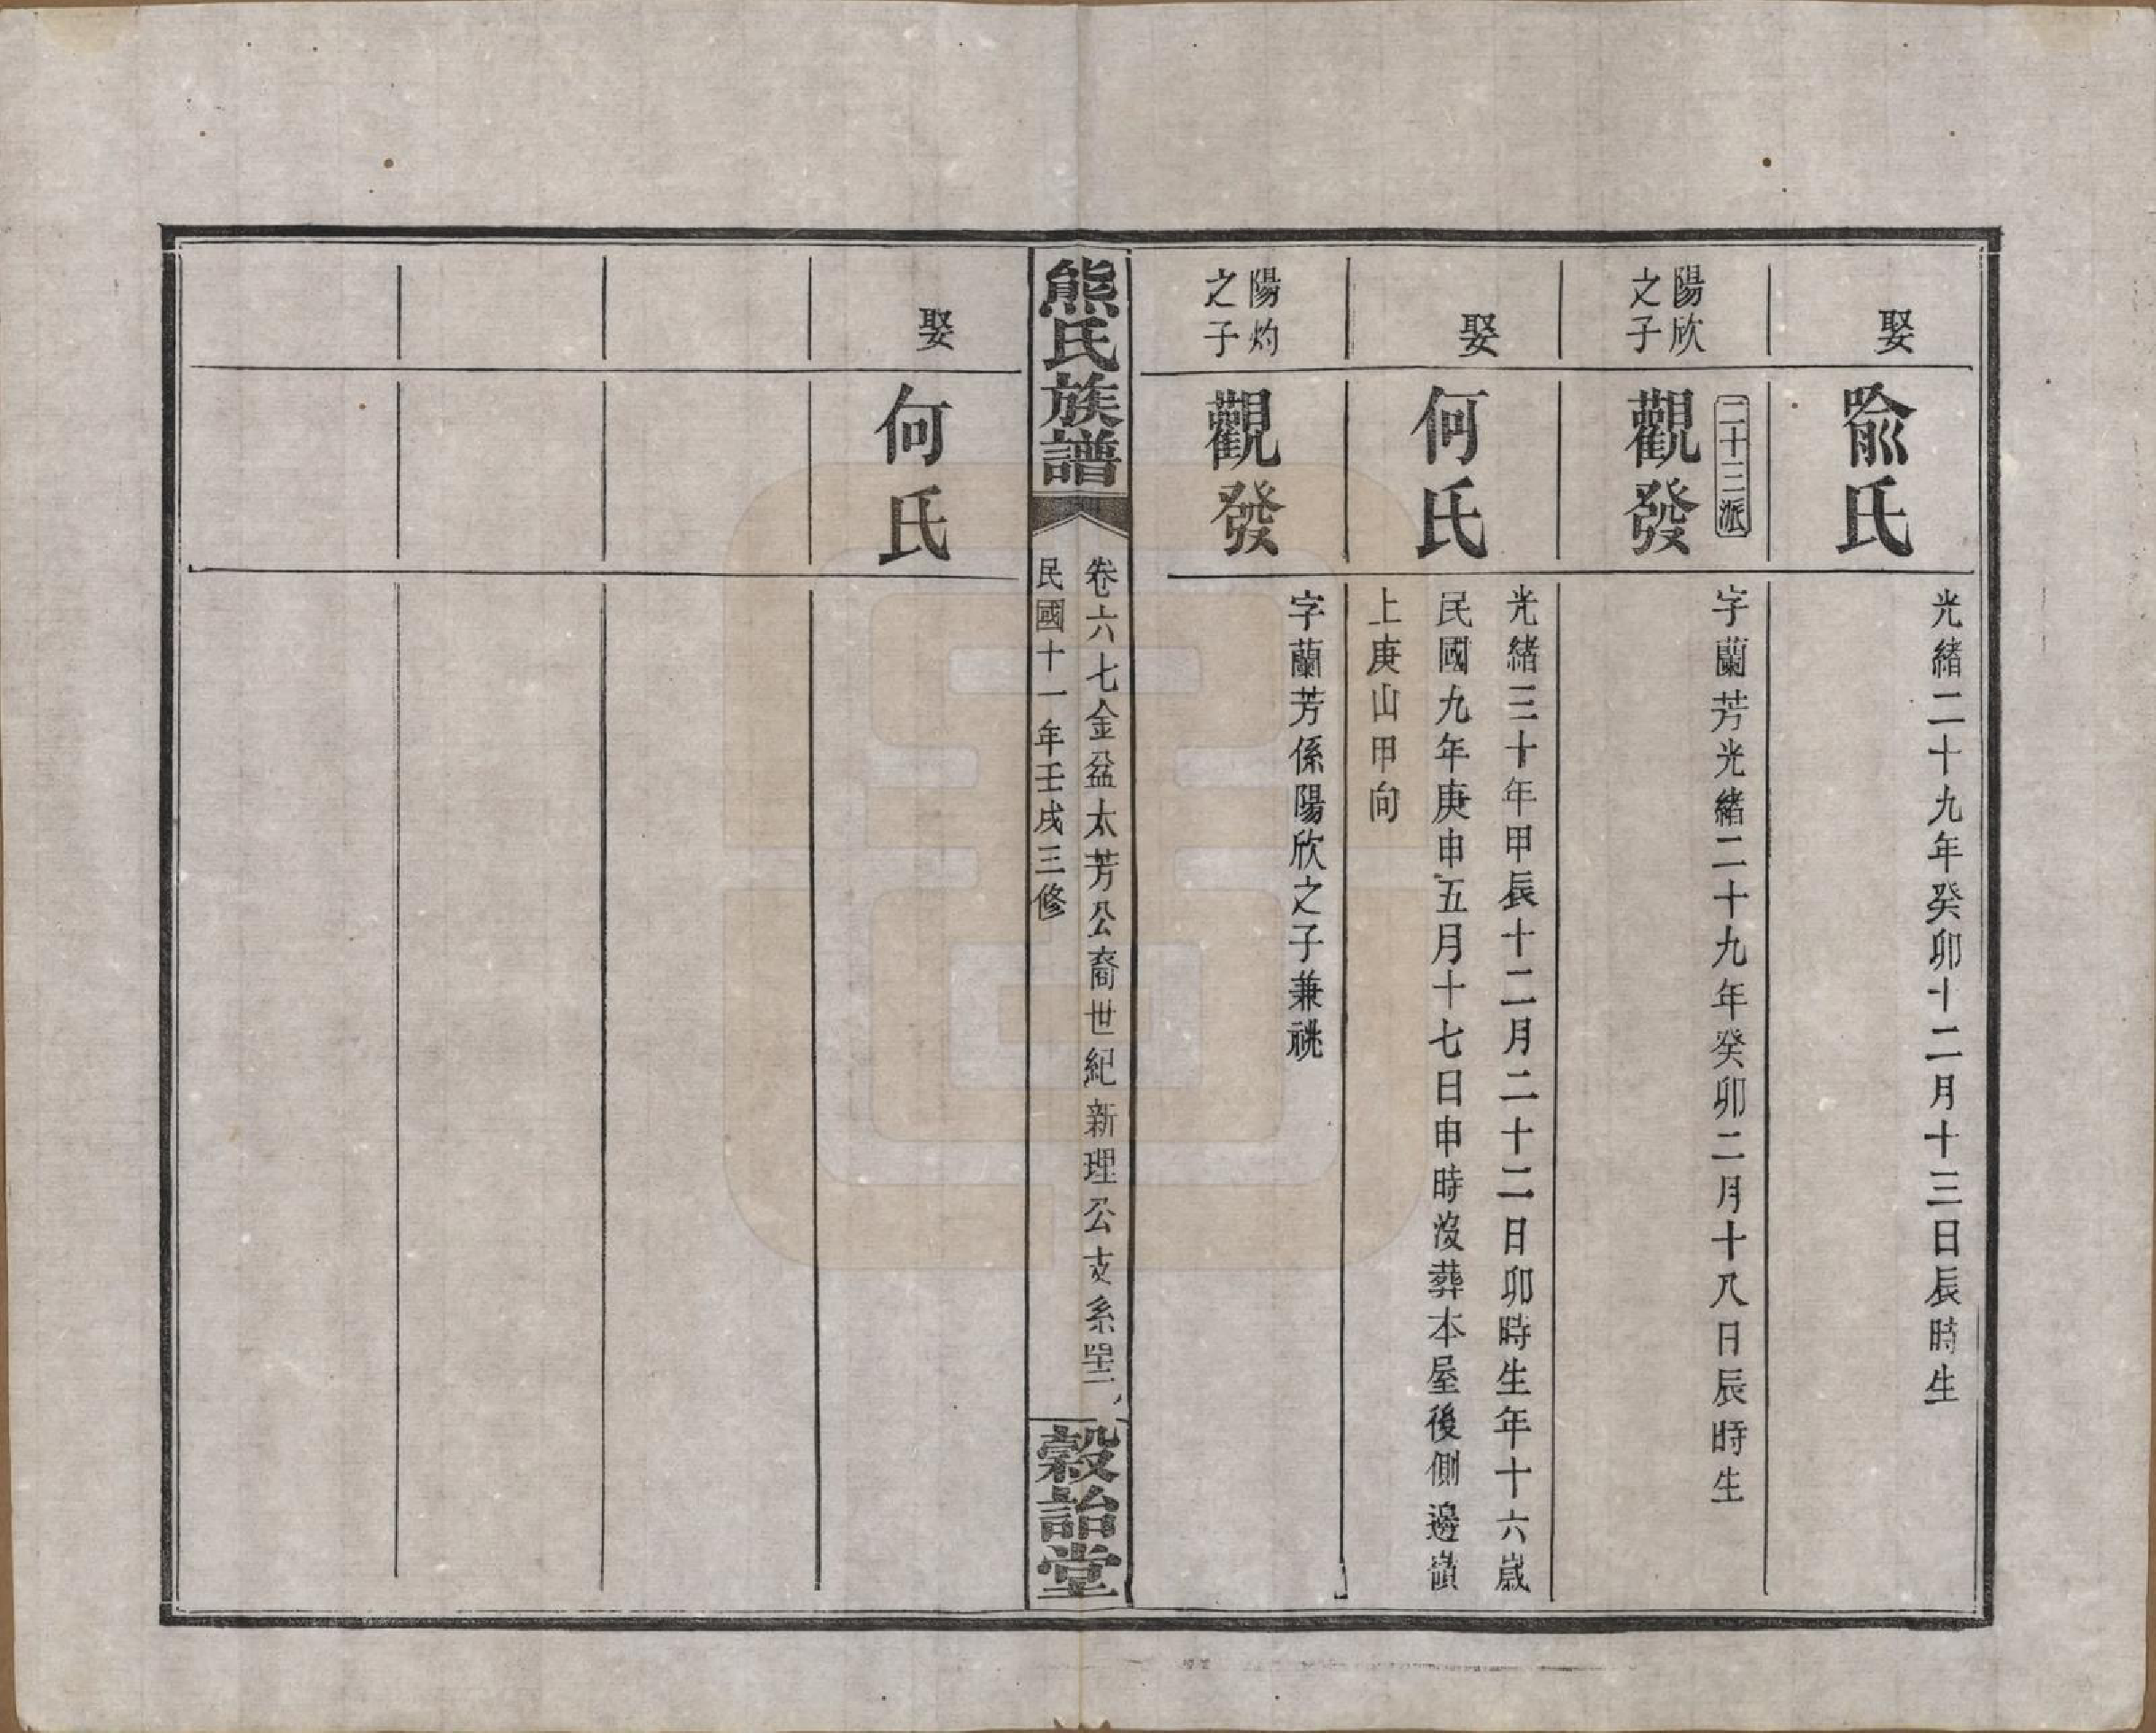 娶
喩氏
光緒二十九年癸卯十二月十三日辰時生
陽欣
之子
二十三派
觀發
字蘭芳光緒二十九年癸卯二月十八日辰時生
娶
何氏
光緒三十年甲辰十二月二十二日卯時生年十六歲
民國九年庚申五月十七日申時沒葬本屋後側邊嶺
上庚山甲向
陽灼
之子
觀發
字蘭芳係陽欣之子兼祧
熊氏族譜
卷六七金盆太芳公裔世紀新理公支系
民國十一年壬戌三修
穀詒堂
娶
何氏